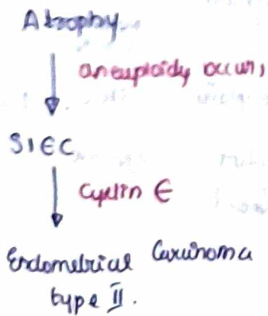 Atrophy
aneuploidy occurs
SIEC
Cyclin E
Endometrial Carcinoma
type II.